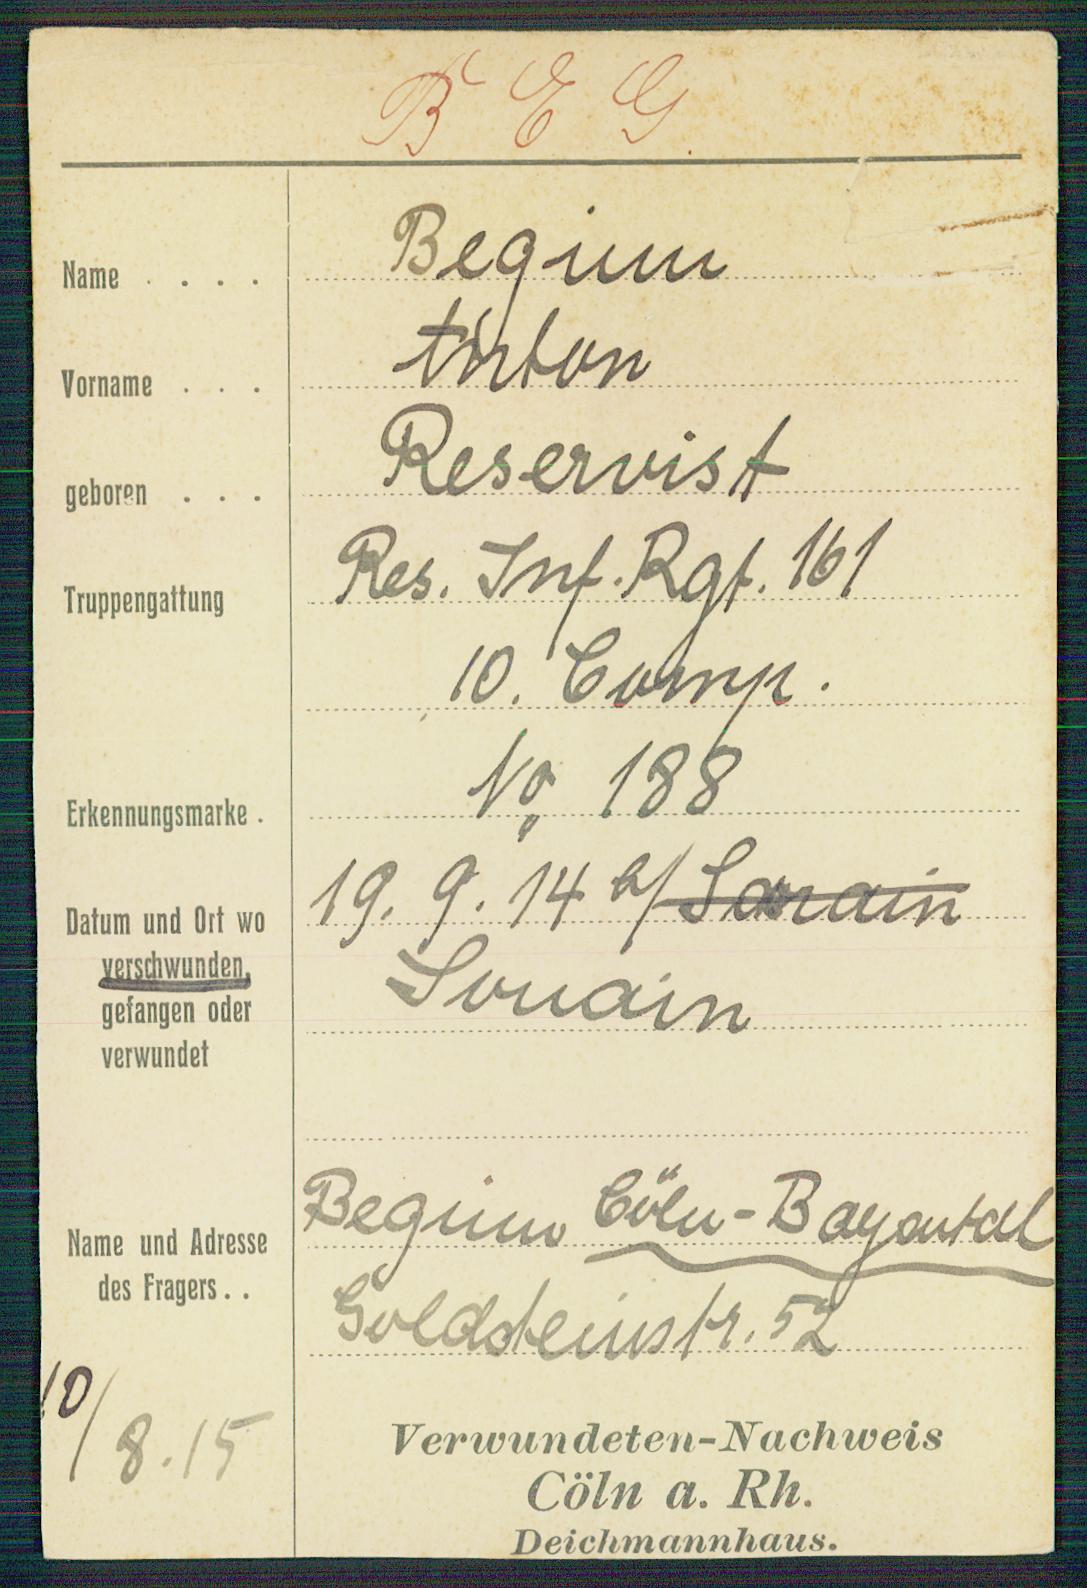 B E G
Name . . . . Beginn
Vorname . . . Anton
geboren . . . Reservist
Truppengattung Res. Inf. Rgt. 161
10. Comp.
Erkennungsmarke . No 188
Datum und Ort wo 19. 9. 14 b/ Sarain
verschwunden, Souain
gefangen oder
verwundet
Name und Adresse Beginn Cöln-Bayental
des Fragers . . Goldsteinstr. 52
10/8.15
Verwundeten-Nachweis
Cöln a. Rh.
Deichmannhaus.